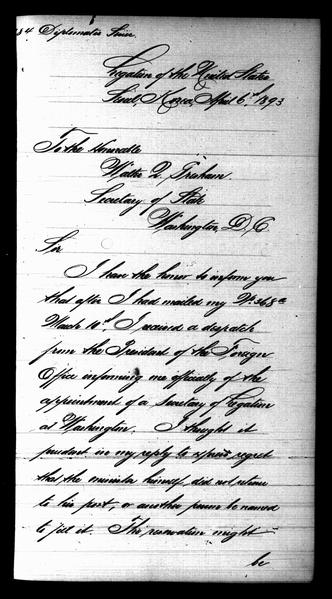 84 Diplomatic Series
Legation of the United States
Seoul, Korea, April 6th, 1893
To the Honorable
Walter Q. Gresham
Secretary of State
Washington, D.C.
Sir
I have the honor to inform you
that after I had mailed my No. 368 on
March 10th, I received a despatch
from the President of the Foreign
Office informing me officially of the
appointment of a Secretary of Legation
at Washington. I thought it
prudent in my reply to express regret
that the minister himself did not return
to his post, or another person be named
to fill it. The reservation might
be